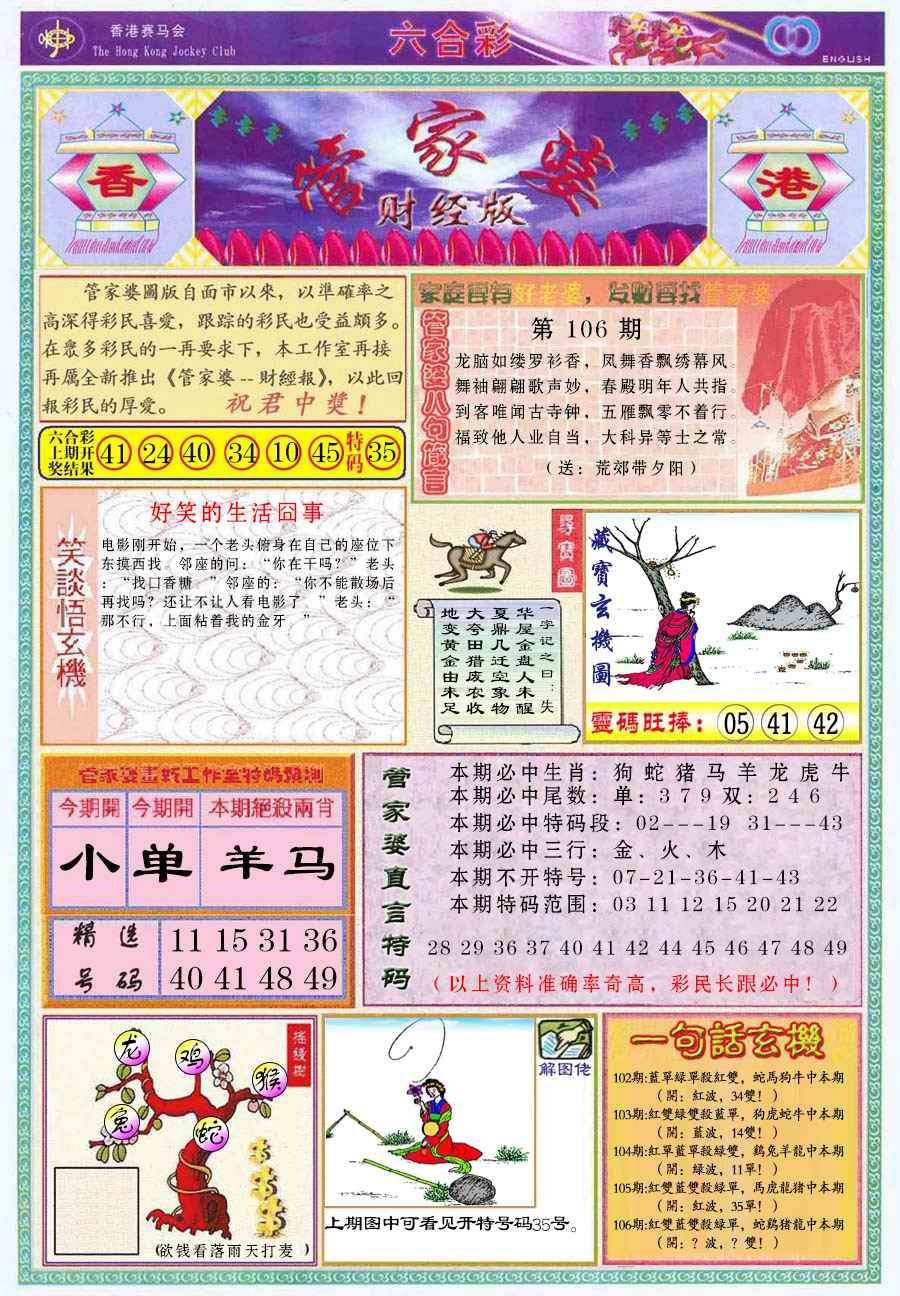 香港赛马会
The Hong Kong Jockey Club
六合彩
ENGLISH
香
管家婆
财经版
港
管家婆圖版自面市以來，以準確率之
高深得彩民喜愛，跟踪的彩民也受益頗多。
在眾多彩民的一再要求下，本工作室再接
再厲全新推出《管家婆--財經報》，以此回
報彩民的厚愛。 祝君中獎！
六合彩
上期开
奖结果
41 24 40 34 10 45 特码 35
好老婆，发财再找管家婆
管家婆八句箴言
第 106 期
龙脑如缕罗衫香，凤舞香飘绣幕风。
舞袖翩翩歌声妙，春殿明年人共指。
到客唯闻古寺钟，五雁飘零不着行。
福致他人业自当，大科异等士之常。
（送：荒郊带夕阳）
笑談悟玄機
好笑的生活囧事
电影刚开始，一个老头俯身在自己的座位下
东摸西找。邻座的问：“你在干吗？”老头
：“找口香糖。”邻座的：“你不能散场后
再找吗？还让不让人看电影了。”老头：“
那不行，上面粘着我的金牙。”
尋寶圖
一字记之曰：失
华屋金盘人未醒
夏鼎几迁空象物
大夸田猎废农收
地变黄金由未足
藏寶玄機圖
靈碼旺捧： 05 41 42
管家婆畫新工作室特碼預測
今期開 今期開 本期絕殺兩肖
小 单 羊马
精选号码
11 15 31 36
40 41 48 49
管家婆直言特码
本期必中生肖：狗蛇猪马羊龙虎牛
本期必中尾数：单：3 7 9 双：2 4 6
本期必中特码段：02---19 31---43
本期必中三行：金、火、木
本期不开特号：07-21-36-41-43
本期特码范围：03 11 12 15 20 21 22
28 29 36 37 40 41 42 44 45 46 47 48 49
（以上资料准确率奇高，彩民长跟必中！）
摇錢樹
龙
鸡
猴
兔
蛇
（欲钱看落雨天打麦）
解图佬
上期图中可看见开特号码35号。
一句話玄機
102期:藍單綠單殺紅雙，蛇馬狗牛中本期
（開：紅波，34雙！）
103期:紅雙綠雙殺藍單，狗虎蛇牛中本期
（開：藍波，14雙！）
104期:紅單藍單殺綠雙，鷄兔羊龍中本期
（開：綠波，11單！）
105期:紅雙藍雙殺綠單，馬虎龍猪中本期
（開：紅波，35單！）
106期:紅雙藍雙殺綠單，蛇鷄猪龍中本期
（開：？波，？雙！）